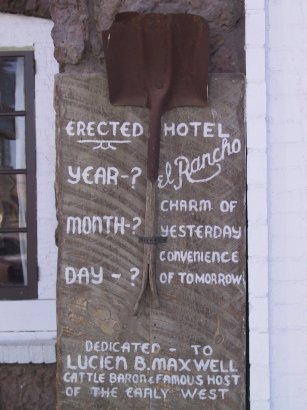 ERECTED HOTEL
YEAR-? el Rancho
CHARM OF
MONTH-? YESTERDAY
CONVENIENCE
DAY-? OF TOMORROW
DEDICATED - TO
LUCIEN B. MAXWELL
CATTLE BARON & FAMOUS HOST
OF THE EARLY WEST